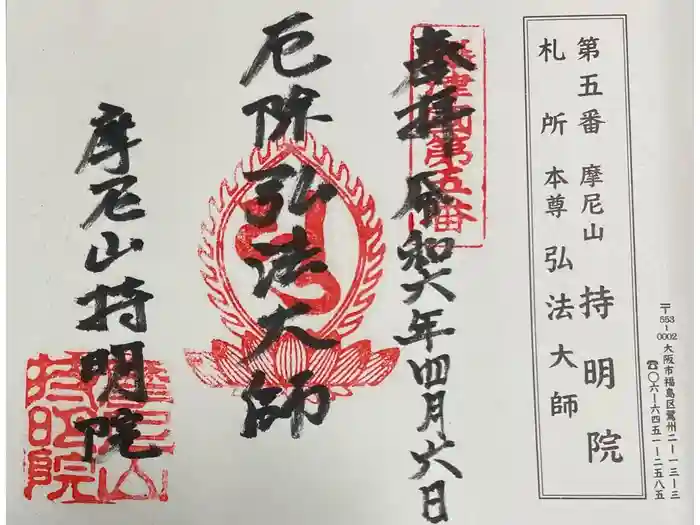 第五番 摩尼山 持明院
札所 本尊 弘法大師
〒553-0002 大阪市福島区鷺州二ー一三ー三
☎〇六ー六四五一ー二五八五
奉拝 令和六年四月六日
摂津国第五番
厄除 弘法大師
摩尼山 持明院
摩尼山
持明院